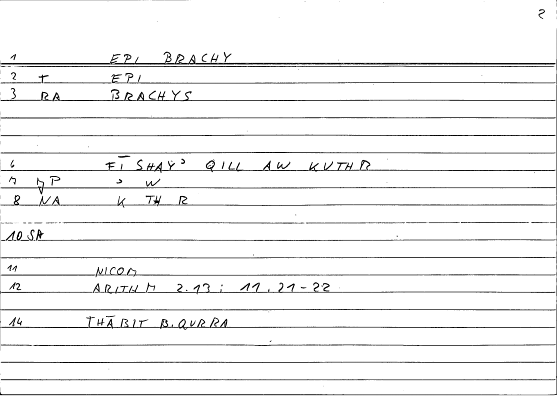 2
1 EPI BRACHY
2 + EPI
3 RA BRACHYS
6 FĪ SHAYʾ QILL AW KUTHR
7 P ʾ W
8 NA K TH R
10 SA
11 NICOM
12 ARITHM 2.13; 11.21-22
14 THĀBIT B. QURRA